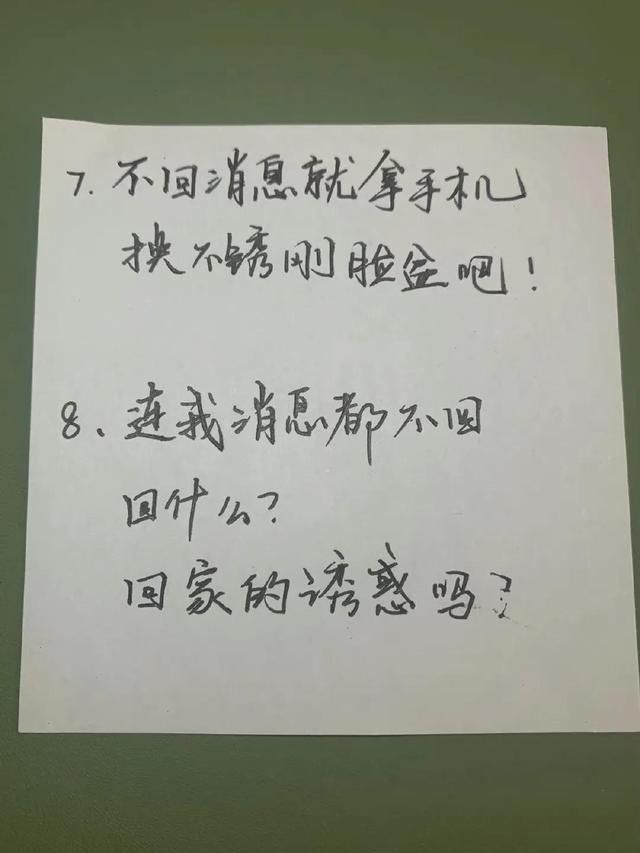 7. 不回消息就拿手机
换不锈刚脸盆吧！
8、连我消息都不回
回什么？
回家的诱惑吗？